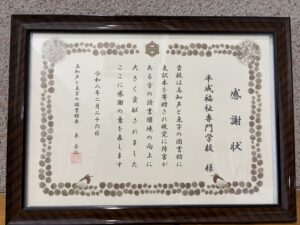 感謝状
平成福祉専門学校 様
貴校は高知声と点字の図書館に
点訳本を寄贈され視覚に障害が
ある方の読書環境の向上に
大きく貢献されました
ここに感謝の意を表します
令和六年二月二十六日
高知声と点字の図書館長